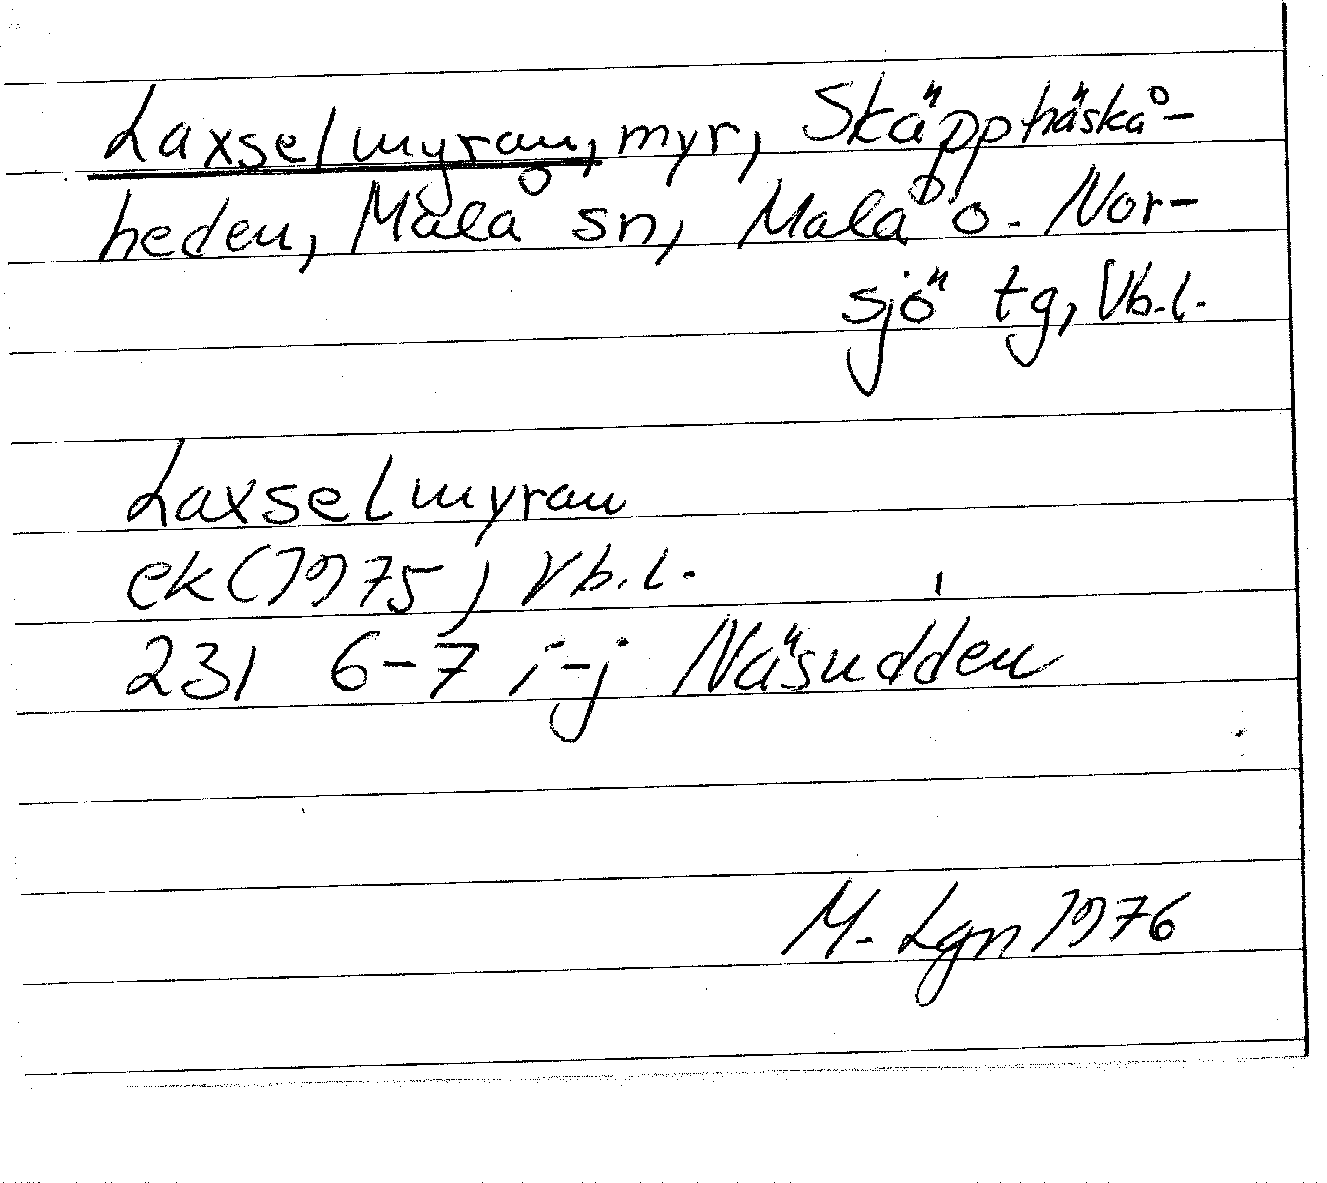 Laxselmyran, myr, Skäppträskå-
heden, Malå sn, Malå o. Nor-
sjö tg, Vb.l.
Laxselmyran
ek (1975) Vb.l.
231 6-7 i-j Näsudden
M. Lgn 1976